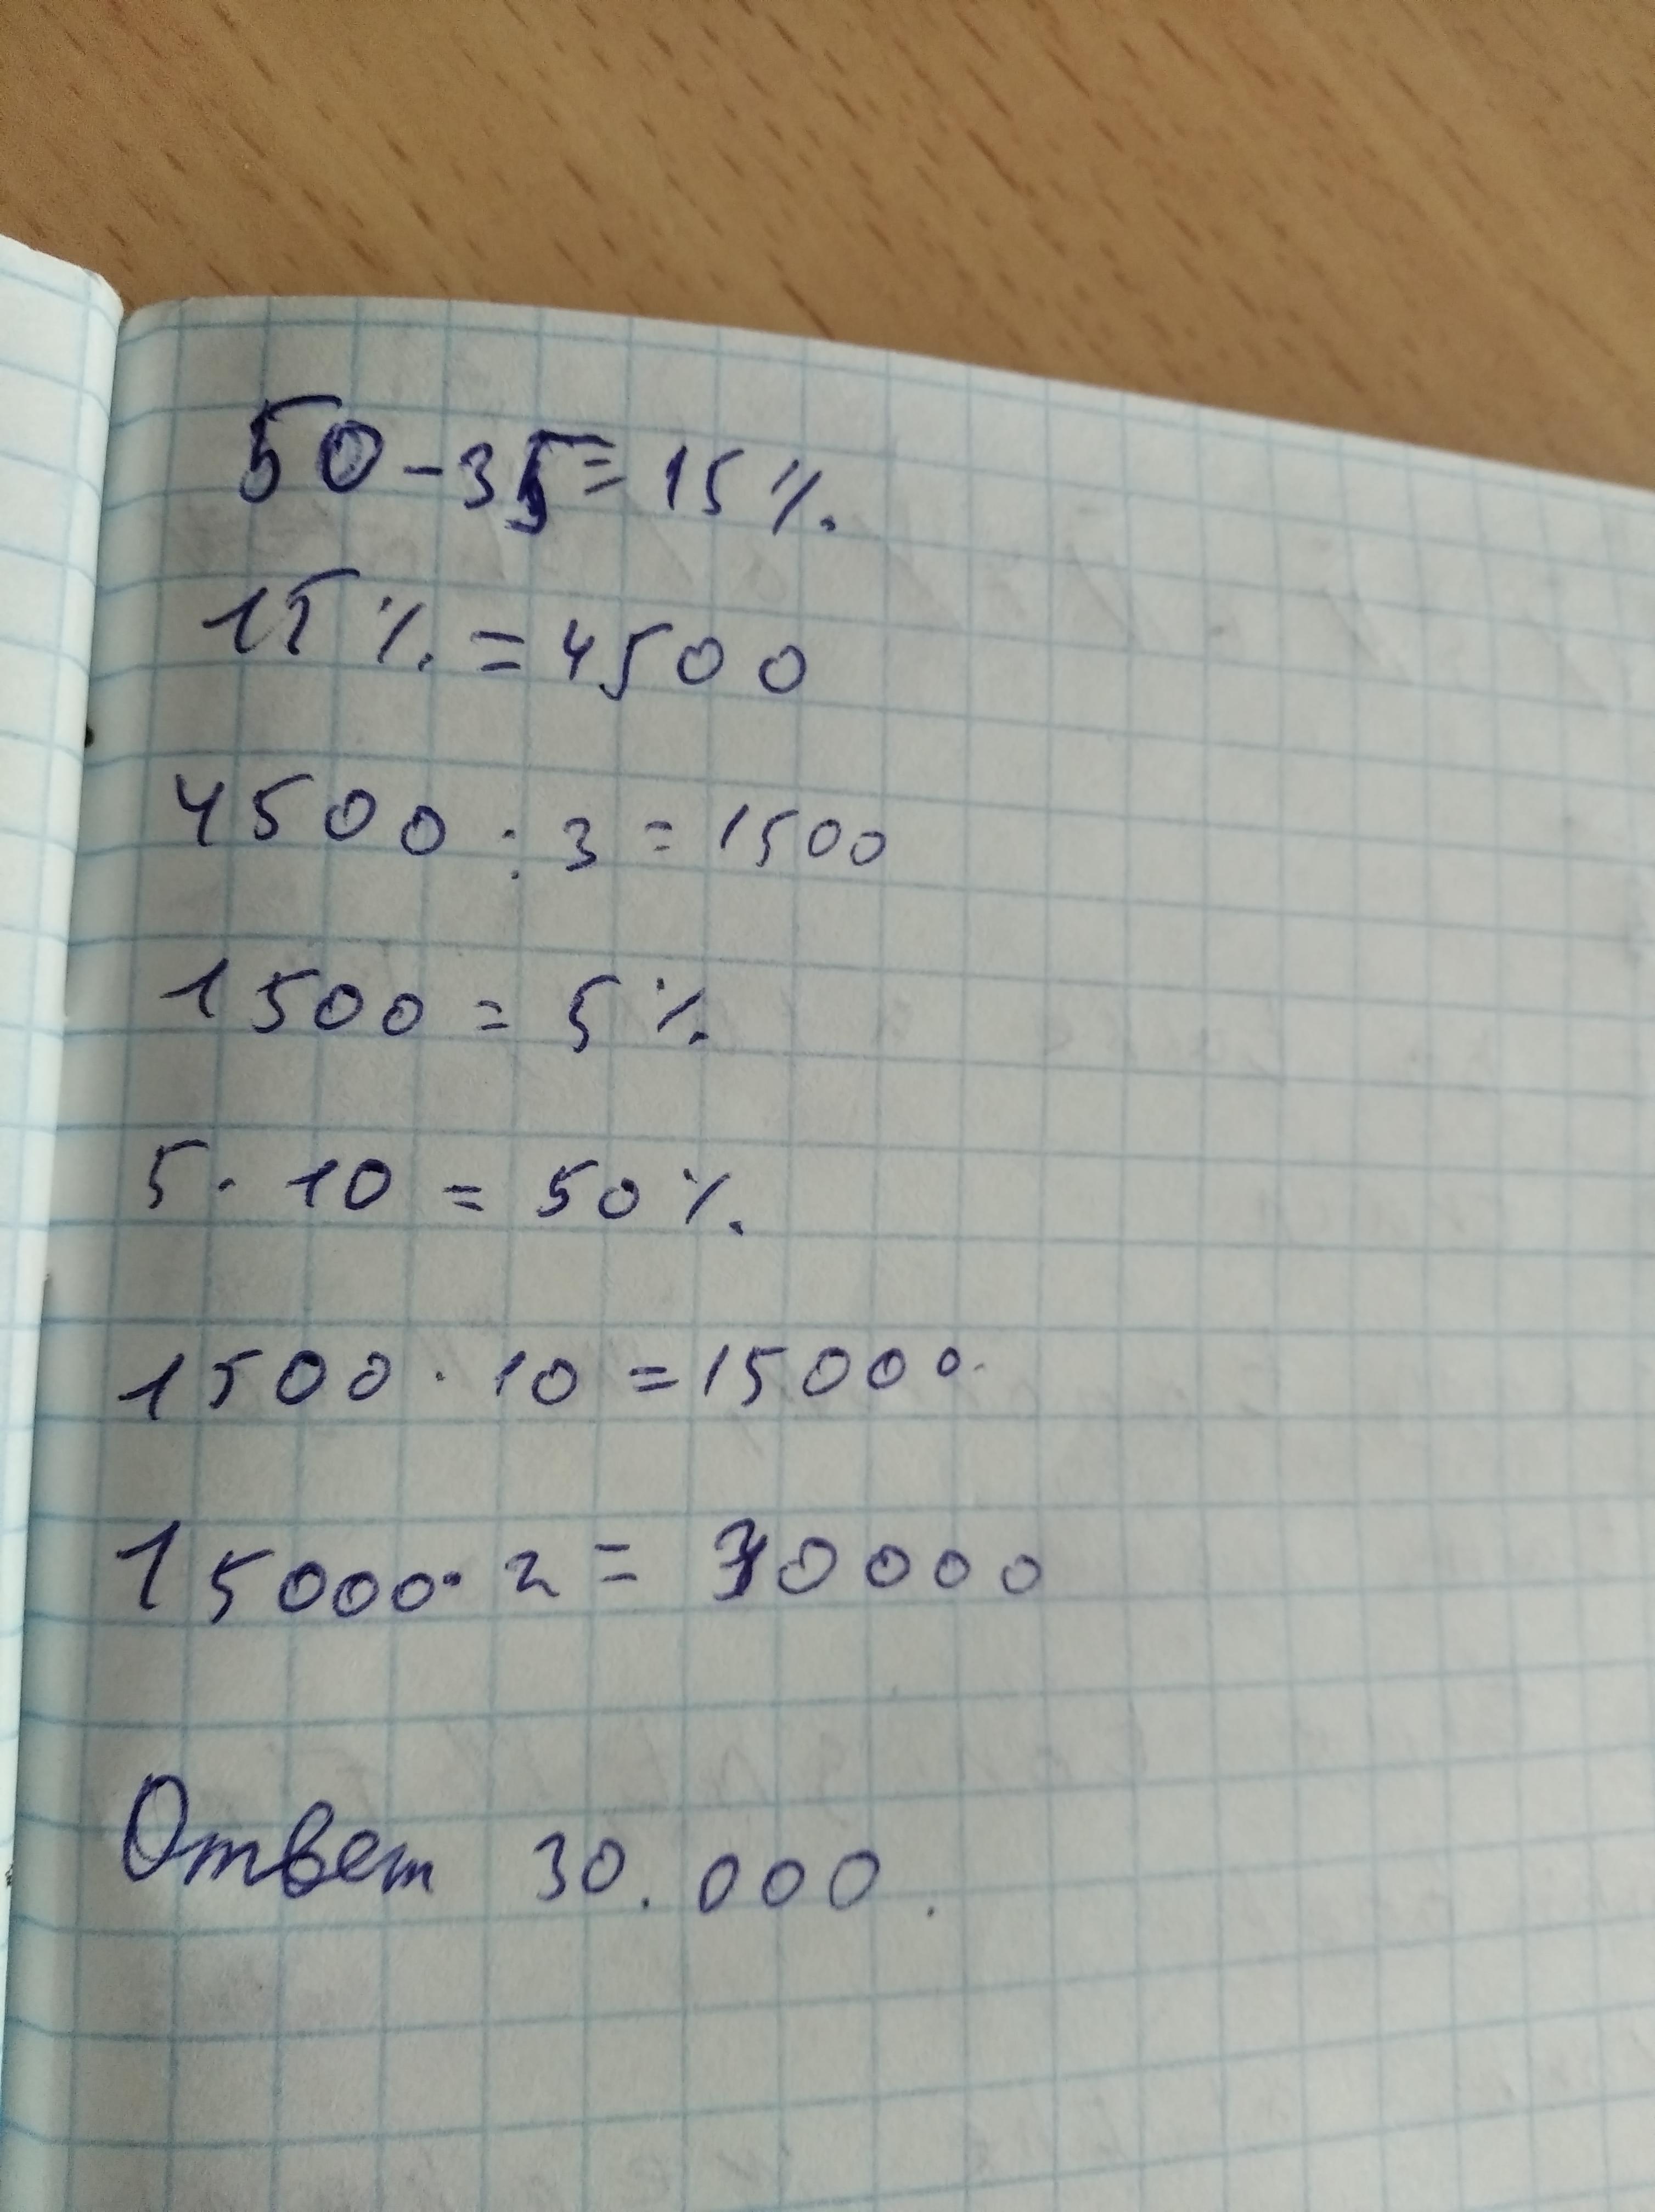 50 - 35 = 15 %.
15 %. = 4500
4500 : 3 = 1500
1500 = 5 %.
5 · 10 = 50 %.
1500 · 10 = 15000
15000 · 2 = 30000
Ответ 30.000.